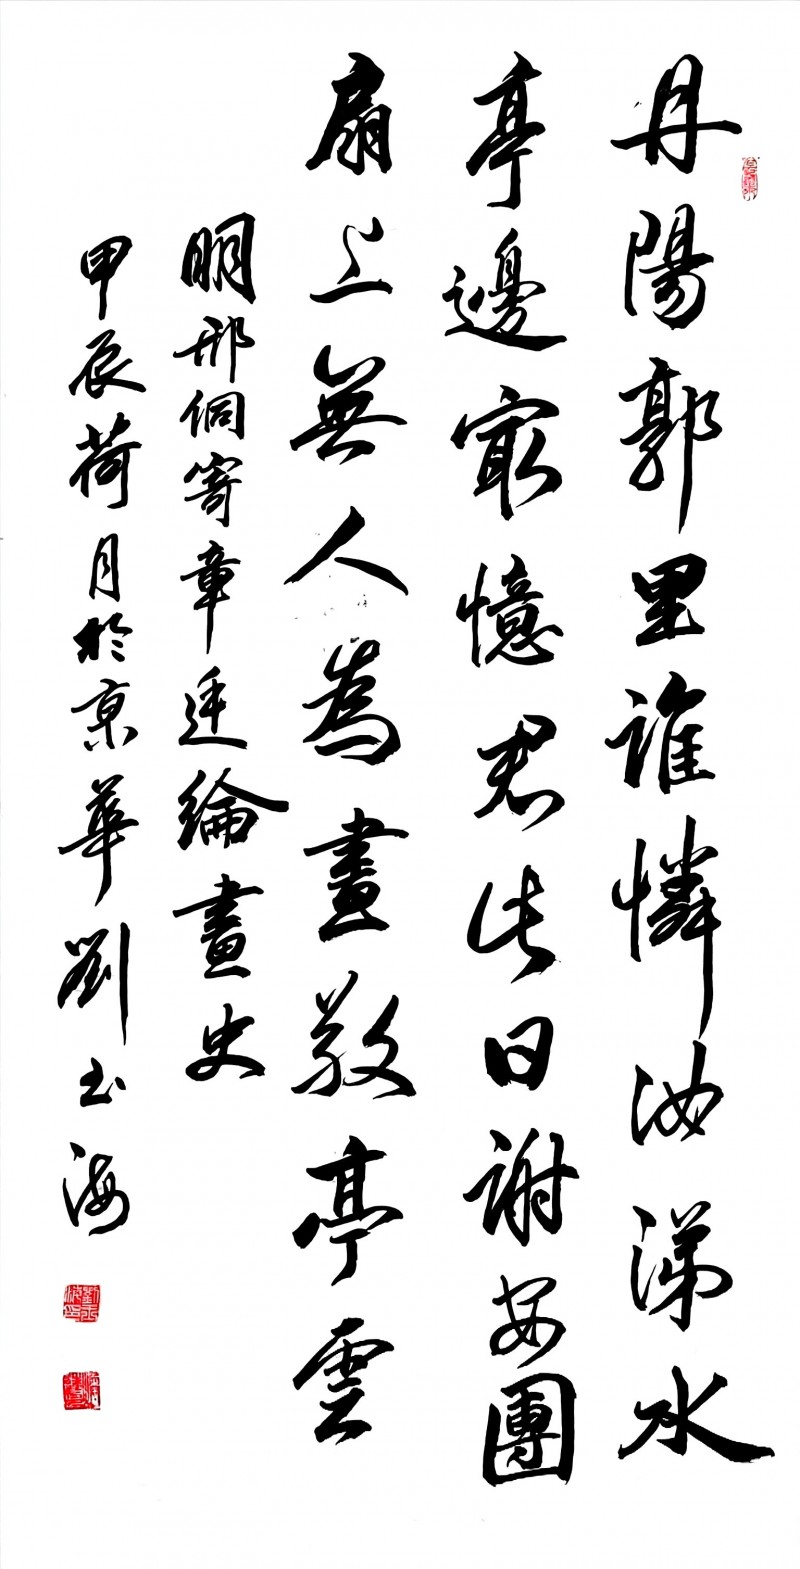 丹陽郭里誰憐汝涕水
亭邊最憶君此日謝安團
扇上無人為畫敬亭雲
明邢侗寄章廷綸畫史
甲辰荷月於京華劉玉海